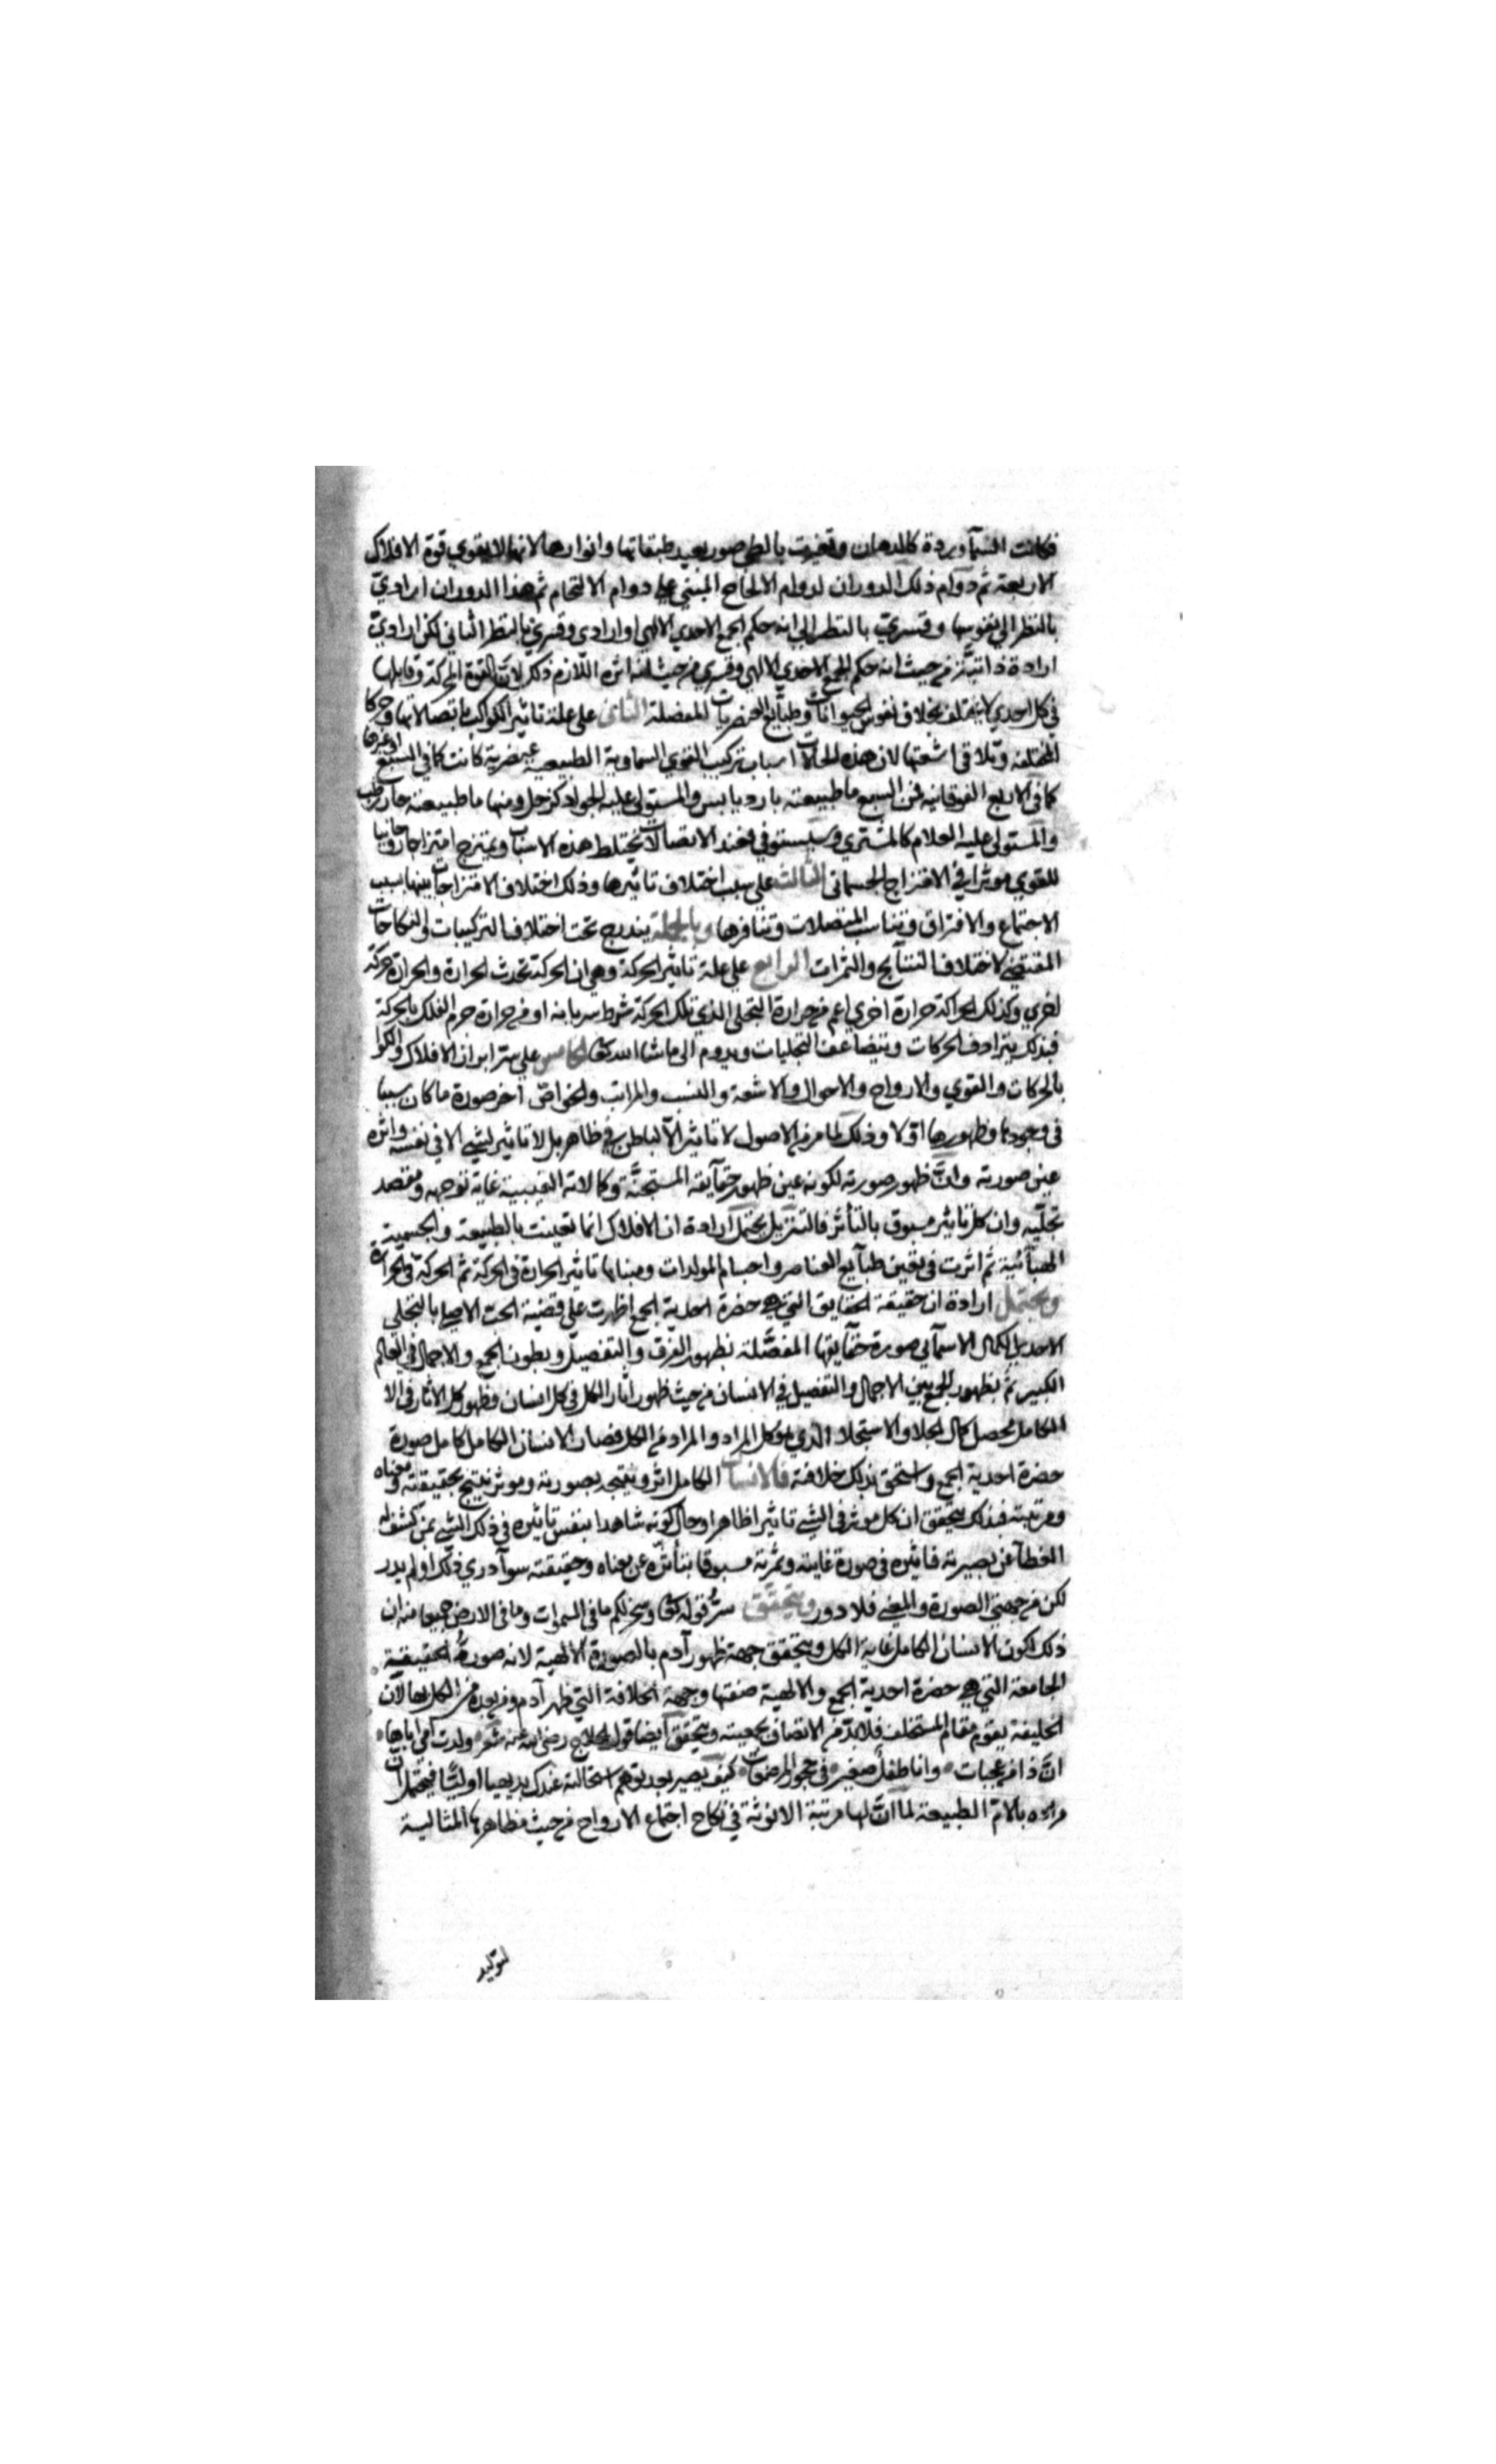 فكانت السمآ وردة كالدهان وتغيرت بالطي صور بعيد طبقاتها وانوارها لانها لا يقوي قوة الافلاك
الاربعة ثم دوام ذلك الدوران لدوام الالحاح المبني علي دوام الالتحام ثم هذا الدوران ارادي
بالنظر الي نفوسها وقسري بالنظر الي انه حكم الجمع الاحدي الالهي او ارادي وقسري بالنظر الثاني لكن ارادي
ارادة ذاتية من حيث انه حكم الجمع الاحدي الالهي وقسري من حيث انه اثره اللازم ذلك لان القوة المحركة وقابلها
في كل احدي لا يختلف بخلاف نفوس الحيوانات وطبايع العنصريات المفصلة الثاني علي علة تاثير الكواكب باتصالاتها وحركا
المختلفة وتلاقي اشعتها لان هذه الحالات اسباب تركيب القوي السماوية الطبيعية عنصرية كانت كما في السبع او غيرها
كما في الاربع الفوقانية فمن السبع ما طبيعته بارد يابس والمستولي عليه الجواد كزحل ومنها ما طبيعته حار رطب
والمستولي عليه العلام كالمشتري وسيستوفي فعند الاتصالات يختلط هذه الاسباب ويمتزج امتزاجا روحانيا
للقوي موثرا في الامتزاج الجسماني الثالث علي سبب اختلاف تاثيرها وذلك اختلاف الامتزاجات بينها بسبب
الاجتماع والافتراق وتناسب المتصلات وتنافرها وبالجملة يندرج تحت اختلاف التركيبات والنكاحات
المقتضي لاختلاف النتايج والثمرات الرابع علي علة تاثير الحركة وهي ان الحركة تحدث الحرارة والحرارة حركة
اخري وكذلك الحركة حرارة اخري اعم من حرارة التجلي الذي تلك الحركة شرط سريانه او من حرارة جرم الفلك بالحركة
فبذلك يترادف الحركات ويتضاعف التجليات ويدوم الي ما شا الله تعالي الخامس علي سر ابراز الافلاك والكوا
بالحركات والقوي والارواح والاحوال والاشعة والنسب والمراتب والخواص آخر صورة ما كان سببا
في وجودها وظهورها اولا وذلك لما مر من الاصول لا تاثير الا لباطن في ظاهر بل لا تاثير لشي الا في نفسه واثره
عين صورته وان ظهور صورته لكونه عين ظهور حقايقه المستجنة وكمالاته الغيبية غاية توجهه ومقصد
تجليه وان كل تاثير مسبوق بالتأثر فالتنزيل يحتمل ارادة ان الافلاك انما تعينت بالطبيعة والجسمية
الهبائية ثم اثرت في تعين طبايع العناصر واجسام المولدات ومبناها تاثير الحرارة في الحركة ثم الحركة في الحرارة
ويحتمل ارادة ان حقيقة الحقايق التي هي حضرة احدية الجمع اظهرت علي قضية الحب الاصلي بالتجلي
الاحدي الكمال الاسمآئي صورة حقايقها المفصلة بظهور الفرق والتفصيل وبطون الجمع والاجمال في العالم
الكبير ثم بظهور الجمع بين الاجمال والتفصيل في الانسان من حيث ظهور اثار الكل في كل انسان وظهور كل الاثار في الا
الكامل يحصل كمال الجلا والاستجلا الذي هو كل المراد والمراد من الكل فصار الانسان الكامل كامل صورة
حضرة احدية الجمع واستحق بذلك خلافته فالانسان الكامل اثر ونتيجة بصورته وموثر نتيج بحقيقته ومعناه
ومرتبته فبذلك يتحقق ان كل موثر في الشي تاثيرا ظاهرا وحال كونه شاهدا بنفس تاثيره في ذلك الشي ممن كشف له
الغطآ عن بصيرته فتاثيره في صورة غايته وثمرته مسبوقا بتأثره عن معناه وحقيقته سوآ دري ذلك او لم يدر
لكن من جهتي الصورة والمعني فلا دور ويتحقق سر قوله تعالي وسخر لكم ما في السموات وما في الارض جميعا منه ان
ذلك لكون الانسان الكامل غاية الكل ويتحقق جهة ظهور آدم بالصورة الالهية لانه صورة الحقيقية
الجامعة التي هي حضرة احدية الجمع والالهية صفتها وجهة الخلافة التي ظهر آدم ومن بعده من الكمل بها لان
الخليفة يقوم مقام المستخلف فلا بد من الاتصاف بجمعيته ويتحقق ايضا قول الحلاج رضي الله عنه شعر ولدت امي اباها
ان ذا من عجبات وانا طفل صغير في حجور المرضعات كيف يصير بعد توهم استحالته عندك بديهيا اوليا فيحتمل ان
مراده بالام الطبيعة لما ان لها مرتبة الانوثة في نكاح اجتماع الارواح من حيث مظاهرها المثالية
لتوليد